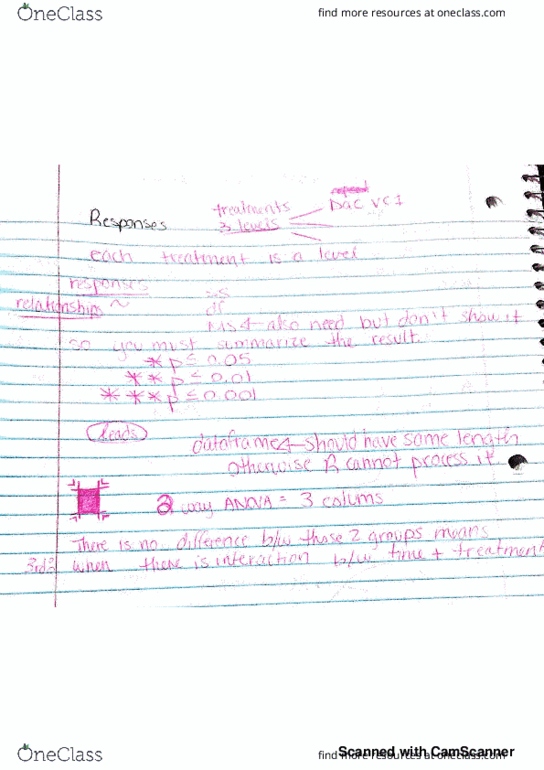 OneClass
find more resources at oneclass.com
treatments
Responses
3 levels
each treatment is a level
responses
relationships ~
SS
df
MS← also need but don't show it
so you must summarize the result
* p ≤ 0.05
** p ≤ 0.01
*** p ≤ 0.001
dataframe← should have same length
otherwise R cannot process it
2 way ANOVA = 3 colums
There is no difference b/w those 2 groups means
when there is interaction b/w time + treatment
OneClass
find more resources at oneclass.com
Scanned with CamScanner